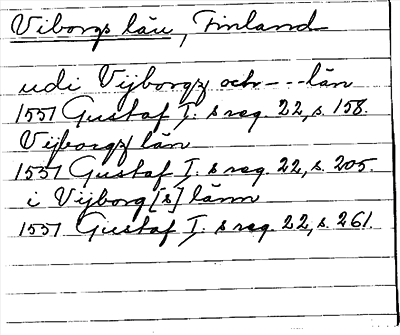 Viborgs län, Finland
udi Vijborgz och - - - län
1551 Gustaf I: s reg. 22, s. 158.
Vijborgz län
1551 Gustaf I: s reg. 22, s. 205.
i Vijborg[s] länn
1551 Gustaf I: s reg. 22, s. 261.